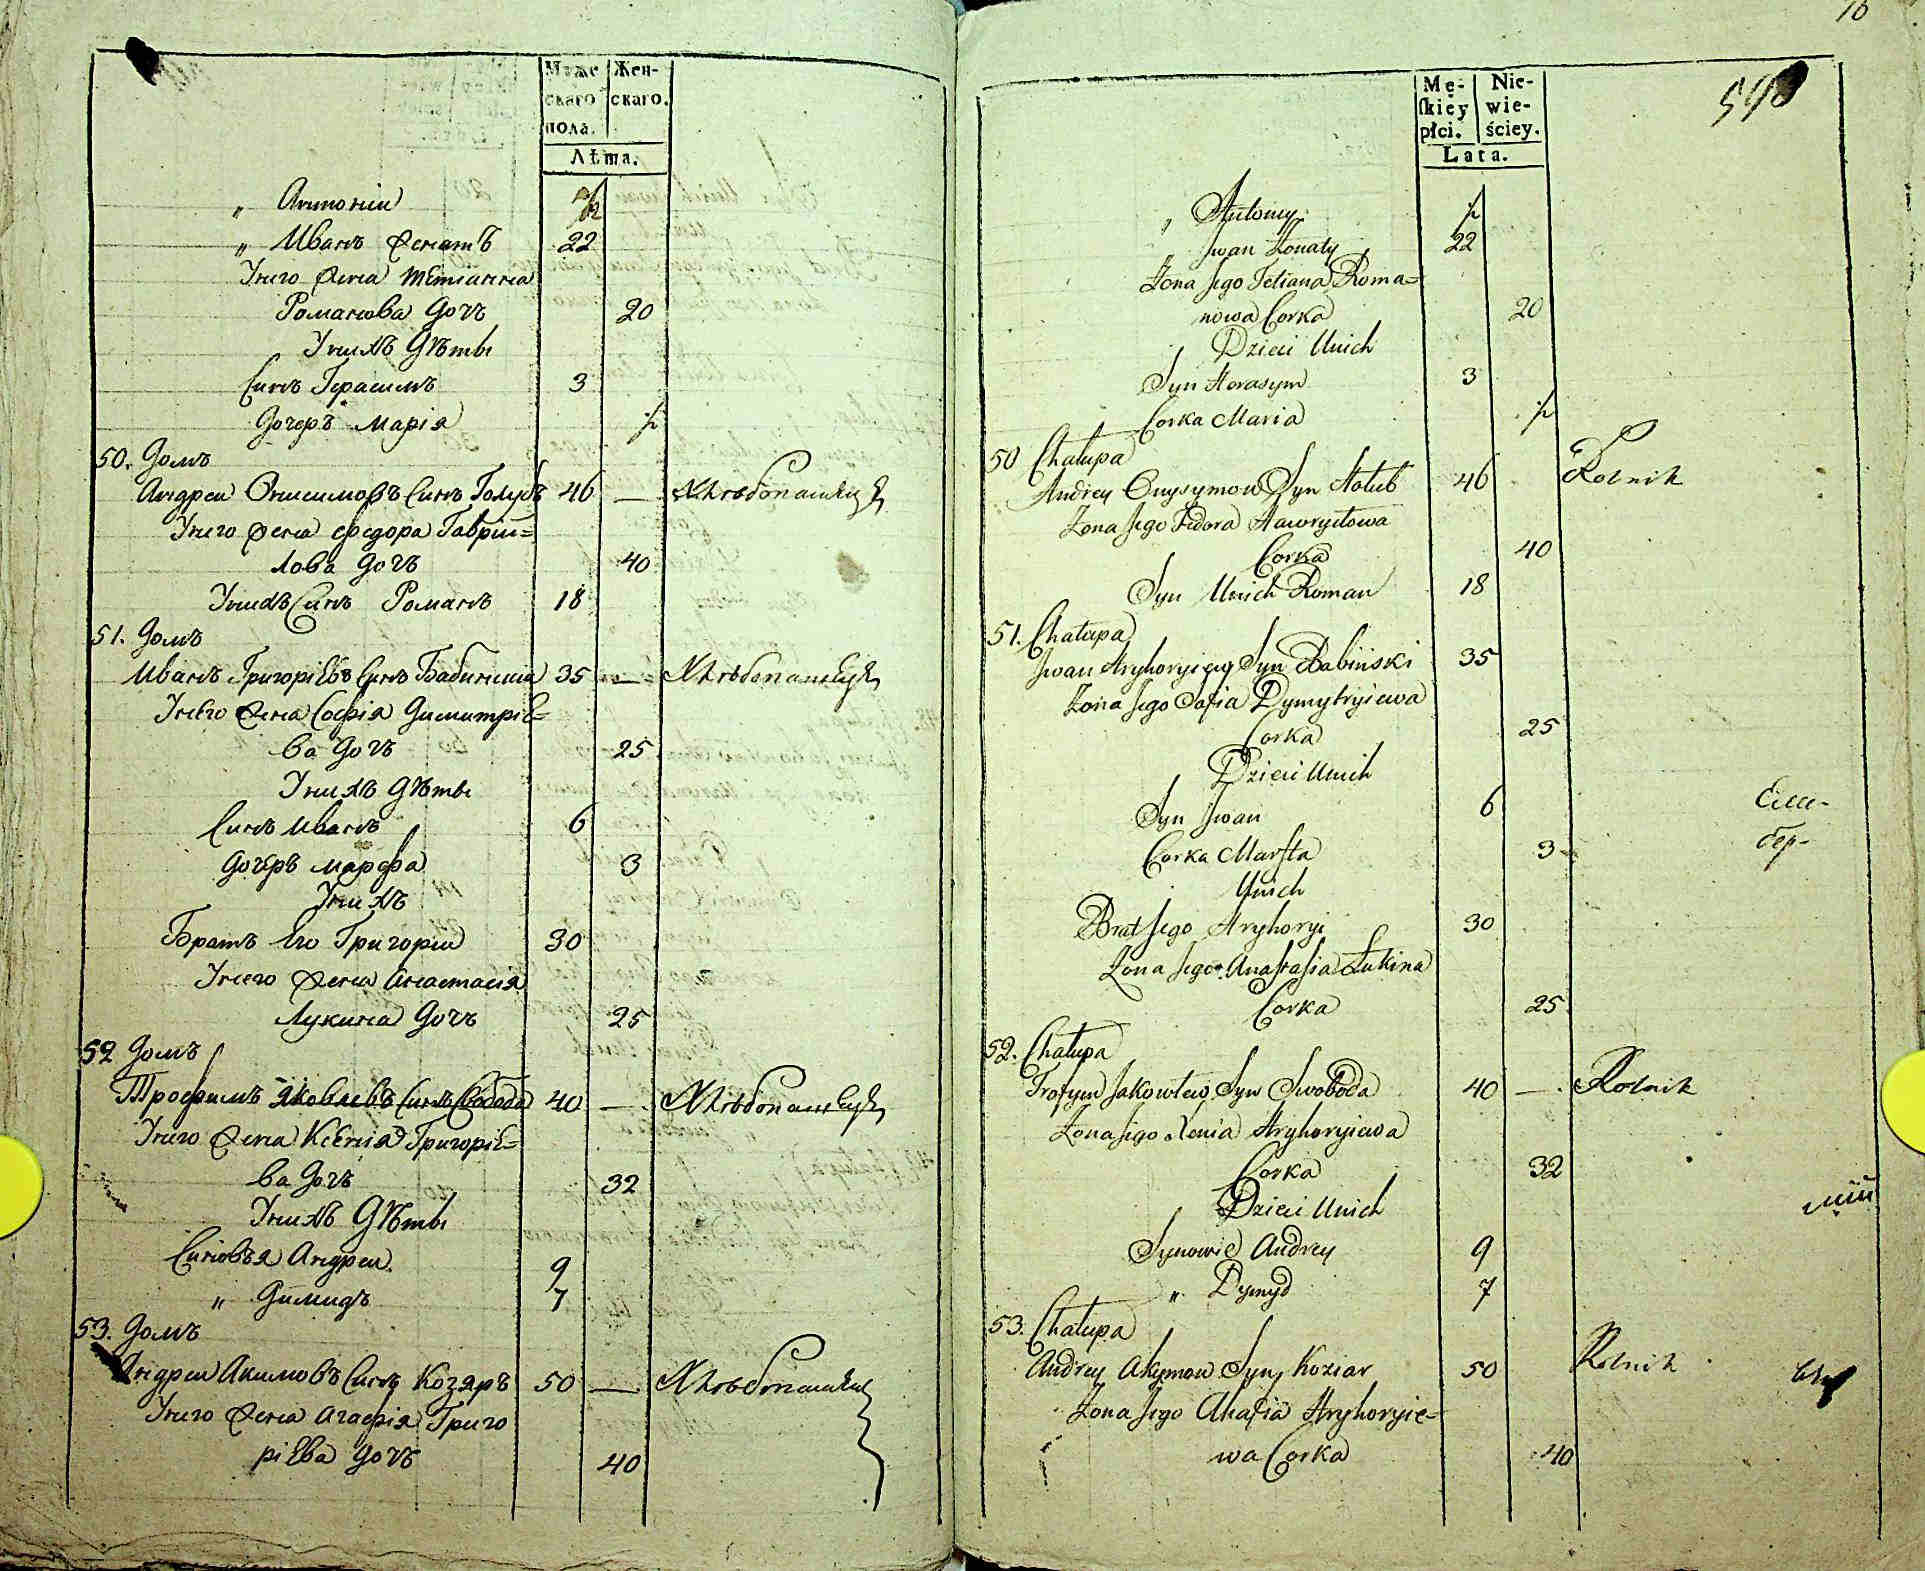 Муже Жен-
скаго скаго.
пола.
Лѣта.
„ Антоній ½
„ Иванъ Женатъ 22
У него Жена Тетіанна
Романова дочь 20
У нихъ Дѣти
Синъ Герасимъ 3
Дочеръ Марія ½
50. Домъ
Андрей Онисимовъ Синъ Голубъ 46 — Хлѣбопашецъ
У него Жена Федора Гаврии=
лова дочь 40
У нихъ Синъ Романъ 18
51. Домъ
Иванъ Григоріевъ Синъ Бабинскій 35 — Хлѣбопашецъ
У него Жена Софія Димитріе=
ва дочь 25
У нихъ Дѣти
Синъ Иванъ 6
Дочеръ Марфа 3
У нихъ
Братъ Его Григорій 30
У него Жена Анастасія
Лукина дочь 25
52 Домъ
Трофимъ Яковлевъ Синъ Свобода 40 — Хлѣбопашецъ
У него Жена Ксенія Григоріе=
ва дочь 32
У нихъ Дѣти
Синовья Андрей 9
„ Димидъ 7
53. Домъ
Андрей Акимовъ Синъ Козяръ 50 — Хлѣбопашецъ
У него Жена Агафія Григо
ріева дочь 40
16
Mę- Nie-
skiey wie-
płci. ściey.
Lata.
„ Antoniy ½
Jwan Żonaty 22
Żona Jego Tetiana Roma=
nowa Corka 20
Dzieci Unich
Syn Harasym 3
Corka Maria ½
50 Chałupa
Andrey Onysymow Syn Hołub 46 Rolnik
Żona Jego Fedora Hawryłowa
Corka 40
Syn Unich Roman 18
51. Chałupa
Jwan Hryhoryiew Syn Babiński 35
Żona Jego Sofia Dymytryiewa
Corka 25
Dzieci Unich
Syn Jwan 6
Corka Marfta 3
Unich
Brat Jego Hryhoryi 30
Żona Jego Anastasia Łukina
Corka 25
52. Chałupa
Trofym Jakowlew Syn Swoboda 40 — Rolnik
Żona Jego Xenia Hryhoryiewa
Corka 32
Dzieci Unich
Synowie Andrey 9
„ Dymyd 7
53. Chałupa
Andrey Akymow Syn Koziar 50 Rolnik
Żona Jego Ahafia Hryhoryie=
wa Corka 40